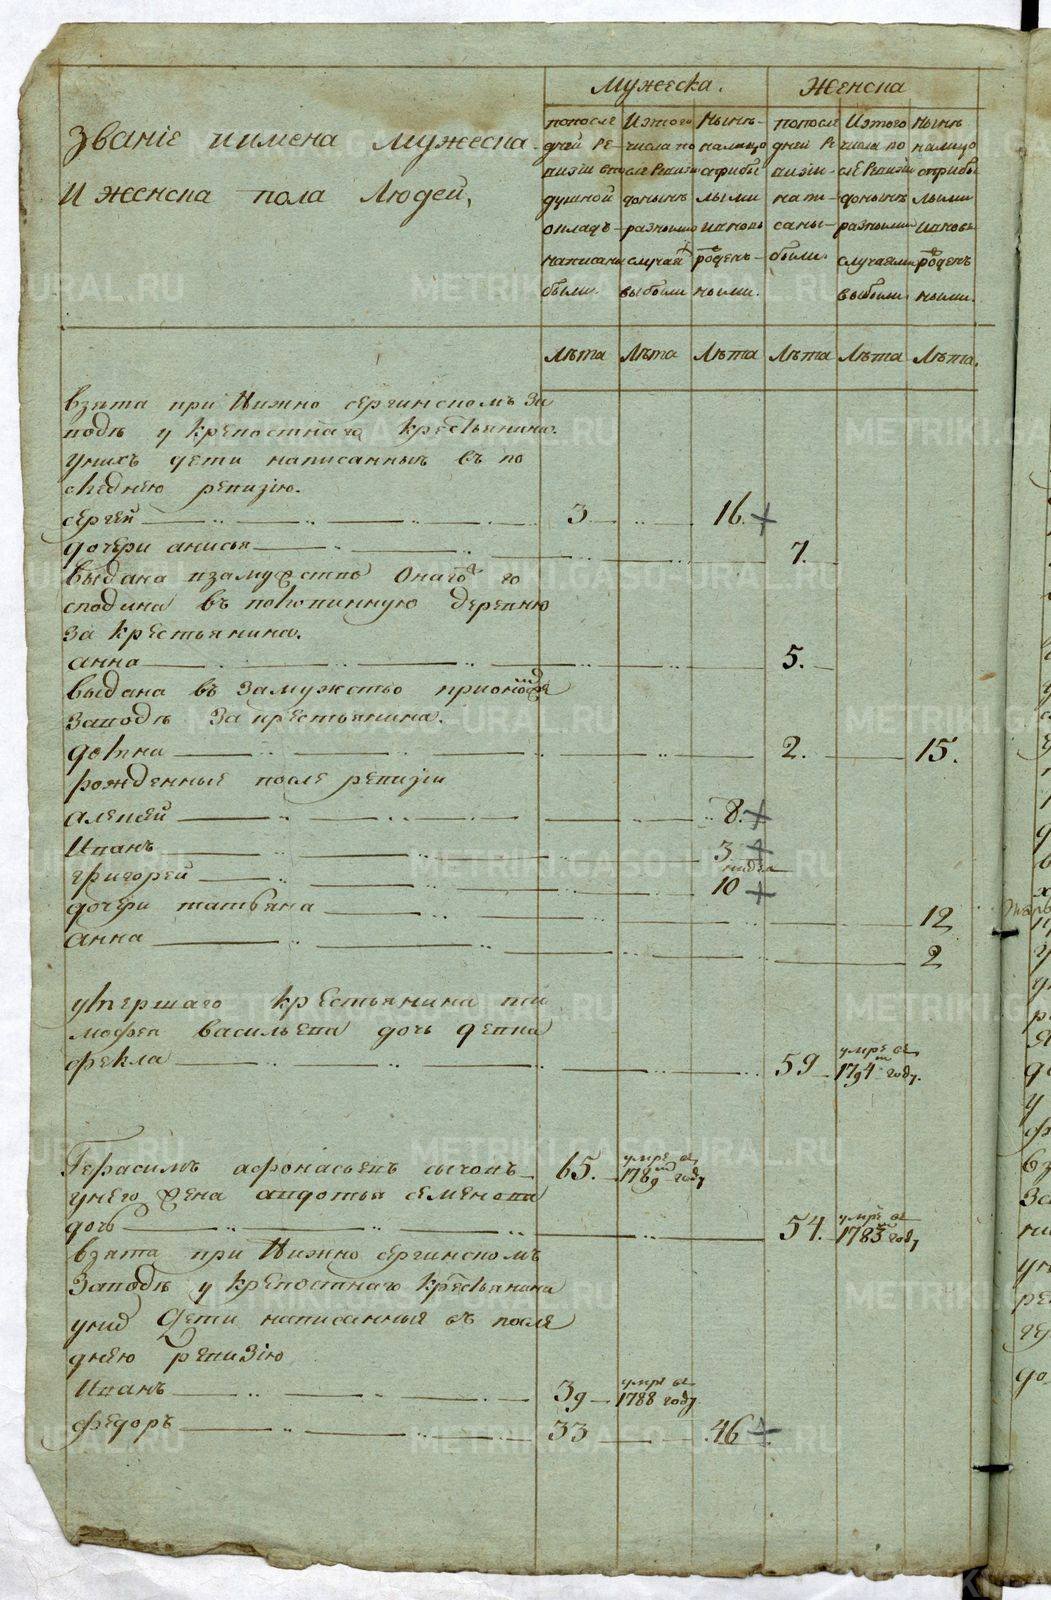 Мужеска. Женска
Званіе иимена мужеска
и женска пола людей,
попосле
дней Ре
визіи впо
душной
окладъ
написаны
были.
Изтого
числа по
слѣ Ревизіи
донынѣ
разными
случаями
выбыли
Нынѣ
налицо
сприбы
лыми
ивновь
рожден
ными.
попосле
дней Ре
визіи
напи
саны
были.
Изтого
числа по
слѣ Ревизіи
донынѣ
разными
случаями
выбыли
Нынѣ
налицо
сприбы
лыми
ивновь
рожден
ными.
Лѣта Лѣта Лѣта Лѣта Лѣта Лѣта.
взята при Нижно сергинскомъ за
водѣ у крепостнаго крестьянина.
унихъ дети написанныя въ по
следнею ревизію.
сергей 3 16.
дочери анисья 7.
выдана взамужство Онаго го
сподина въ деревню
за крестьянина.
анна 5.
выдана въ замужство
заводѣ за крестьянина.
2. 15.
рожденные после ревизіи
алексей 8.
Иванъ 3
недел
григорей 10
дочери татьяна 12
анна 2
умершаго крестьянина
васильева дочь девка
фекла 59 умре въ
1794м году.
Герасимъ афонасьевъ сычовъ 65. умре въ
1789м году
унего жена авдотья семенова
дочь 54. умре въ
1783м году
взята при Нижно сергинскомъ
Заводѣ у крепостнаго крестьянина
уних Дети написанныя въ после
днею ревизію
Иванъ 39 умре въ
1788 году.
федоръ 33 46
METRIKI.GASO-URAL.RU